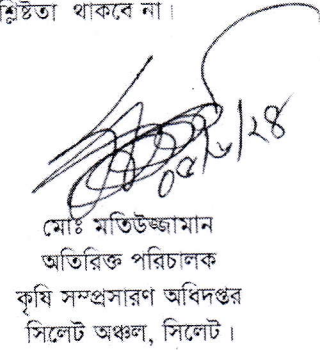 শ্লিষ্টতা থাকবে না।
০৫/৬/২৪
মোঃ মতিউজ্জামান
অতিরিক্ত পরিচালক
কৃষি সম্প্রসারণ অধিদপ্তর
সিলেট অঞ্চল, সিলেট।